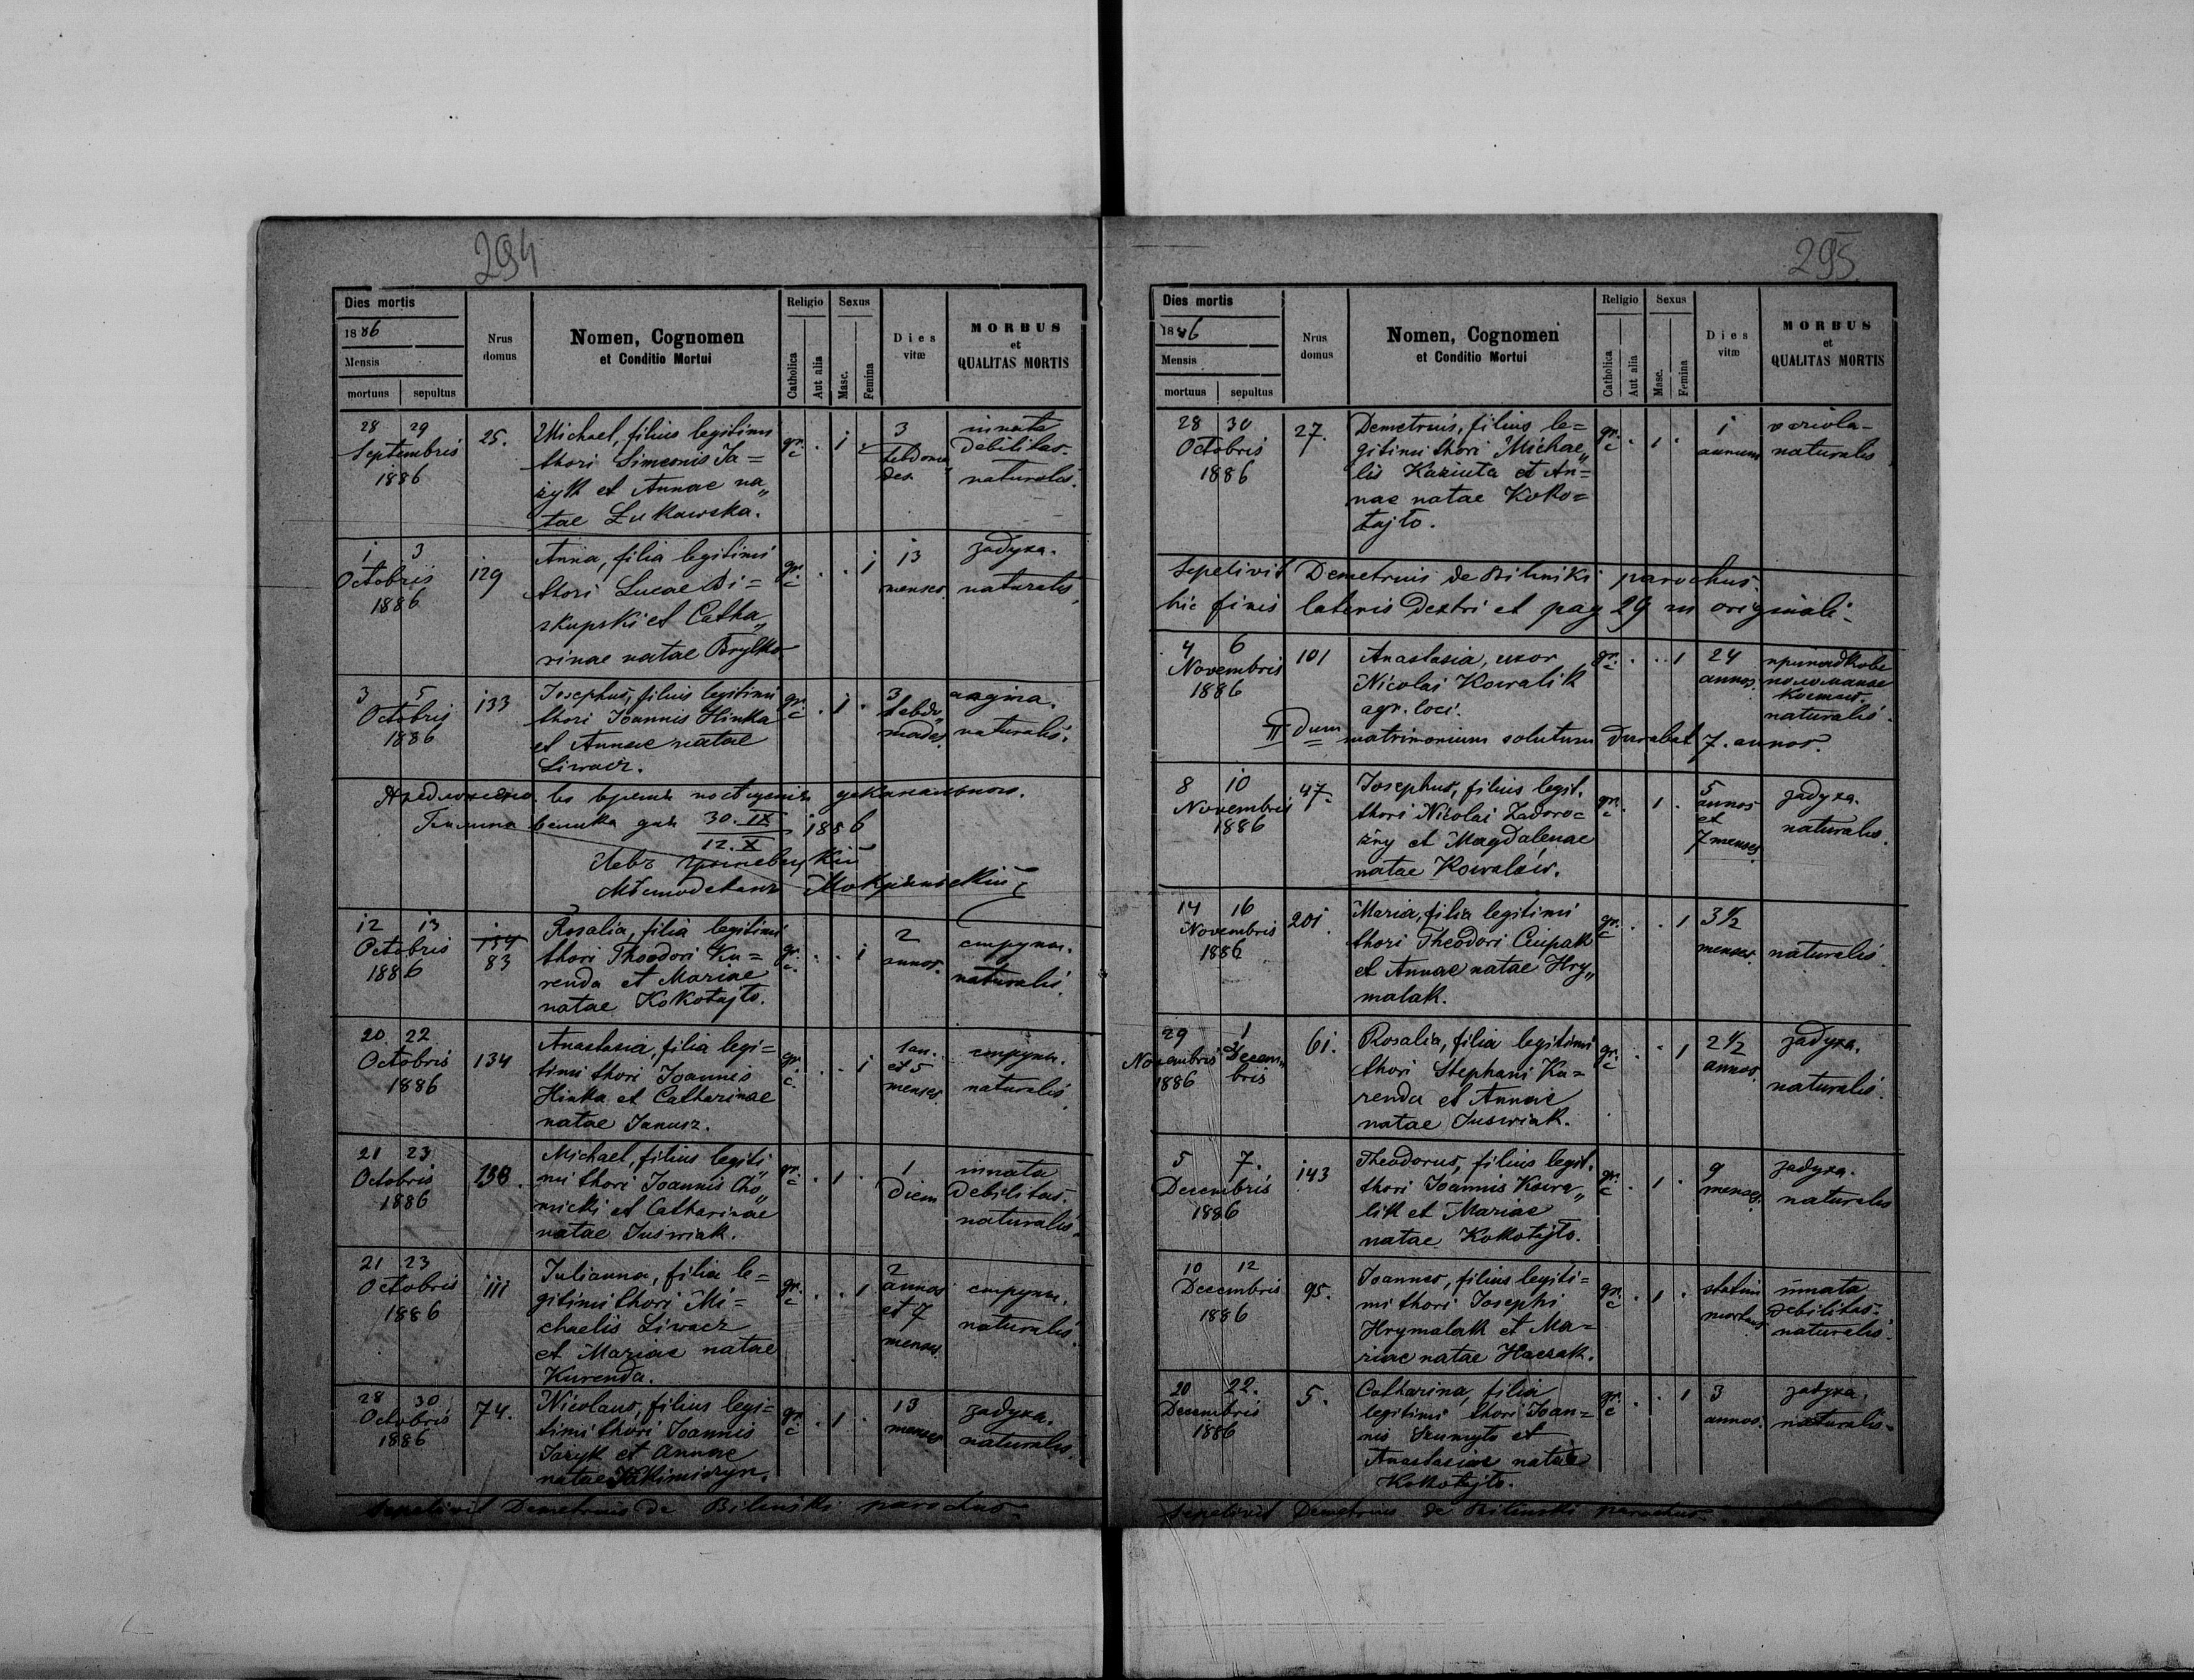 294
Dies mortis
1886
Mensis
mortuus sepultus
Nrus domus
Nomen, Cognomen
et Conditio Mortui
Religio
Catholica
Aut alia
Sexus
Masc.
Femina
Dies vitæ
MORBUS
et
QUALITAS MORTIS
28 29
Septembris
1886
25.
Michael, filius legitimi
thori Simeonis Ja=
żyk et Annae na„
tae Łukawska.
gr. c
1
3
hebdoma
des
innata
debilitas.
naturalis.
1 3
Octobris
1886
129
Anna, filia legitimi
thori Lucae Bi=
skupski et Catha„
rinae natae Brylko
gr. c
1
13
menses.
задуха.
naturalis.
3 5
Octobris
1886
133
Josephus, filius legitimi
thori Joannis Hinka
et Annae natae
Liwacz.
gr. c
1
3
hebdo„
madas.
angina.
naturalis.
30. IX
12. X
1886
12 13
Octobris
1886
134
83
Rosalia, filia legitimi
thori Theodori Ku=
renda et Mariae
natae Kokotajło.
gr. c.
1
2
annos.
струпы.
naturalis.
20 22
Octobris
1886
134
Anastasia, filia legi=
timi thori Joannis
Hinka et Catharinae
natae Janusz.
gr. c.
1
1 an.
et 5
menses.
струпы.
naturalis.
21 23
Octobris
1886
138.
Michael, filius legiti„
mi thori Joannis Cho„
micki et Catharinae
natae Juświak.
gr. c
1
1
diem
innata
debilitas.
naturalis.
21 23
Octobris
1886
111
Julianna, filia le=
gitimi thori Mi=
chaelis Liwacz
et Mariae natae
Kurenda.
gr. c
1
2
annos
et 7
menses.
струпы.
naturalis.
28 30
Octobris
1886
74.
Nicolaus, filius legi=
timi thori Joannis
Jażyk et Annae
natae Jakimiszyn.
gr. c
1
13
menses
задуха.
naturalis.
Sepelivit Demetrius de Biliński parochus.
295
Dies mortis
1886
Mensis
mortuus sepultus
Nrus domus
Nomen, Cognomen
et Conditio Mortui
Religio
Catholica
Aut alia
Sexus
Masc.
Femina
Dies vitæ
MORBUS
et
QUALITAS MORTIS
28 30
Octobris
1886
27.
Demetrius, filius le=
gitimi thori Michae„
lis Kaziuta et An=
nae natae Koko=
tajło.
gr. c
1
1
annum
variola
naturalis
Sepelivit Demetrius de Biliński parochus.
hic finis lateris dextri et pag 29 in originali.
4 6
Novembris
1886
101
Anastasia, uxor
Nicolai Kowalik
agr. loci.
gr. c
1
24
annos.
naturalis.
II dum matrimonium solutum durabat 7. annos.
8 10
Novembris
1886
47.
Josephus, filius legit.
thori Nicolai Zadoro=
żny et Magdalenae
natae Kowalów.
gr. c
1
5
annos
et
7 menses.
задуха.
naturalis.
14 16
Novembris
1886
201.
Maria, filia legitimi
thori Theodori Ciupak
et Annae natae Hry„
malak.
gr. c
1
3 1/2
menses.
naturalis.
29 1
Novembris Decem„
1886 bris
61.
Rosalia, filia legitimi
thori Stephani Ku=
renda et Annae
natae Juświak.
gr. c
1
2 1/2
annos.
задуха.
naturalis.
5 7.
Decembris
1886
143
Theodorus, filius legit.
thori Joannis Kowa„
lik et Mariae
natae Kokotajło.
gr. c
1
9
menses.
задуха.
naturalis
10 12
Decembris
1886
95.
Joannes, filius legiti=
mi thori Josephi
Hrymalak et Ma=
riae natae Haczak.
gr. c
1
statim
mortuus
innata
debilitas.
naturalis.
20 22.
Decembris
1886
5.
Catharina, filia
legitimi thori Joan=
nis Szumyło et
Anastasiae natae
Kokotajło.
gr. c
1
3
annos.
задуха.
naturalis.
Sepelivit Demetrius de Biliński parochus.